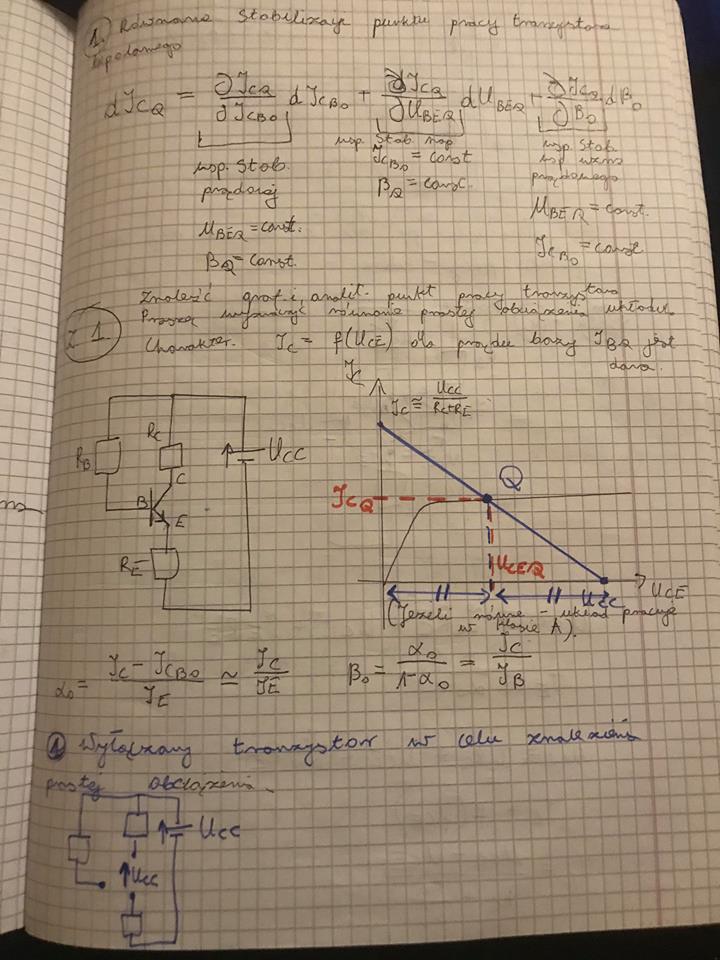 1. Równanie Stabilizacji punktu pracy tranzystora
bipolarnego
dI_CQ = ∂I_CQ/∂I_CB0 dI_CB0 + ∂I_CQ/∂U_BEQ dU_BEQ + ∂I_CQ/∂β_0 dβ_0
wsp. Stab. prądowej
U_BEQ = const.
β_Q = const.
wsp. Stab nap
I_CB0 = const
β_Q = const.
wsp. Stab.
wsp wzm
prądowego
U_BEQ = const.
I_CB0 = const
Z 1.
Znaleźć graf. i analit. punkt pracy tranzystora
Proszę wyznaczyć równanie prostej obciążenia układu.
Charakter. I_C = f(U_CE) dla prądu bazy I_BQ jest
dana.
R_B
R_C
C
B
E
R_E
U_CC
I_C
I_C ≅ U_CC/(R_C+R_E)
Q
I_CQ
U_CEQ
U_CC
U_CE
(Jeżeli równe - układ pracuje
w klasie A).
α_0 = (I_C - I_CB0)/I_E ≃ I_C/I_E
β_0 = α_0/(1-α_0) = I_C/I_B
1 Wyłączamy tranzystor w celu znalezienia
prostej obciążenia.
U_CC
U_CC